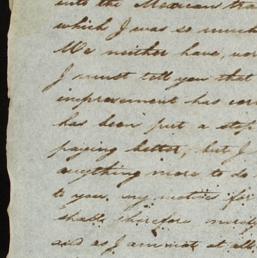 into the Mexican tra
which I was so much
We neither have, wor
I must tell you that
improvement has com
has been put a stop
paying better, but I
anything more to do
to you, my motives for
shall therefore
and as I am not at all